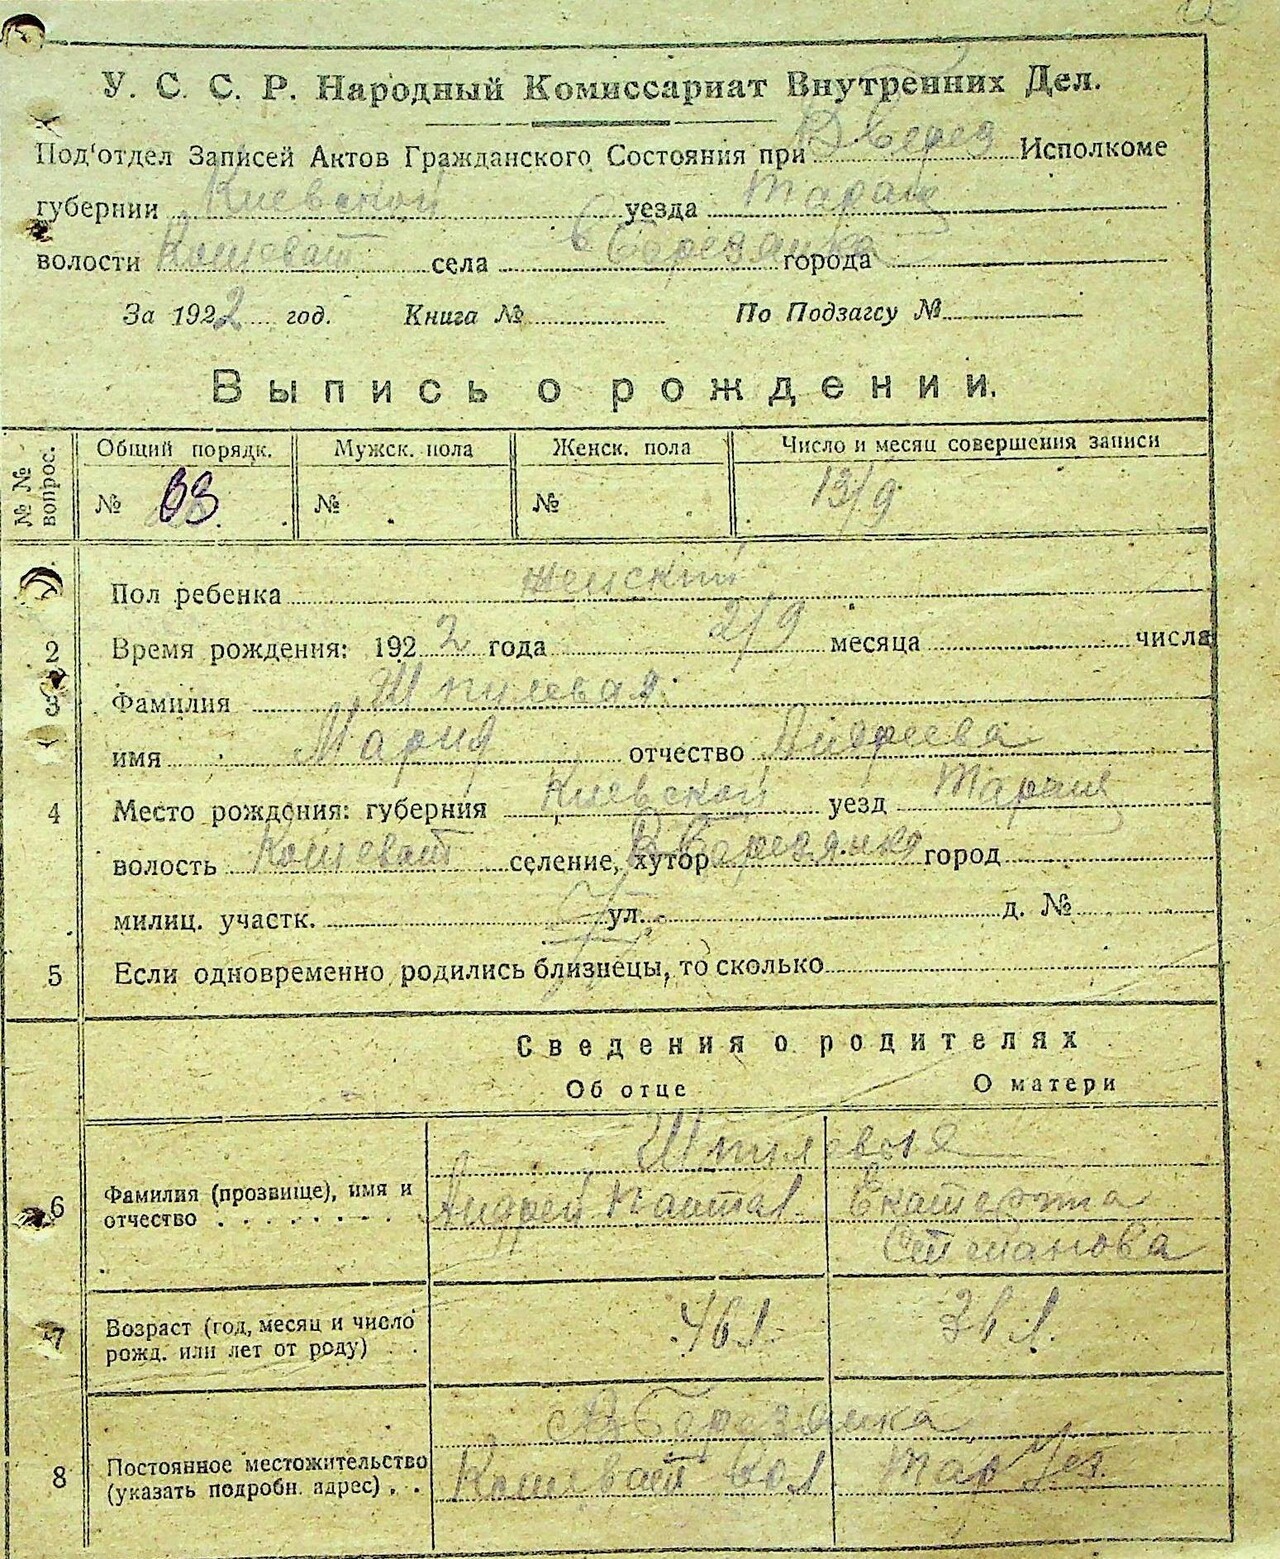 У. С. С. Р. Народный Комиссариат Внутренних Дел.
Под‘отдел Записей Актов Гражданского Состояния при Исполкоме
губернии Киевской уезда Таращ
волости Кошеват села Березянка города
За 1922 год. Книга № По Подзагсу №
Выпись о рождении.
№ № вопрос.
Общий порядк. Мужск. пола Женск. пола Число и месяц совершения записи
№ 63 № № 13/9
Пол ребенка женский
2 Время рождения: 1922 года 2/9 месяца числа
3 Фамилия Шпилевая
имя Мария отчество Андреева
4 Место рождения: губерния Киевской уезд Таращ
волость Кошеват селение, хутор Березянка город
милиц. участк. ул. д. №
5 Если одновременно родились близнецы, то сколько
Сведения о родителях
Об отце О матери
Шпилевыя
6 Фамилия (прозвище), имя и отчество . . . . . . . . Андрей Екатерина
Степанова
7 Возраст (год, месяц и число рожд. или лет от роду) . . 46 л 36 л.
Березянка
8 Постоянное местожительство (указать подробн. адрес) . . Кошеват вол Тар Уез.